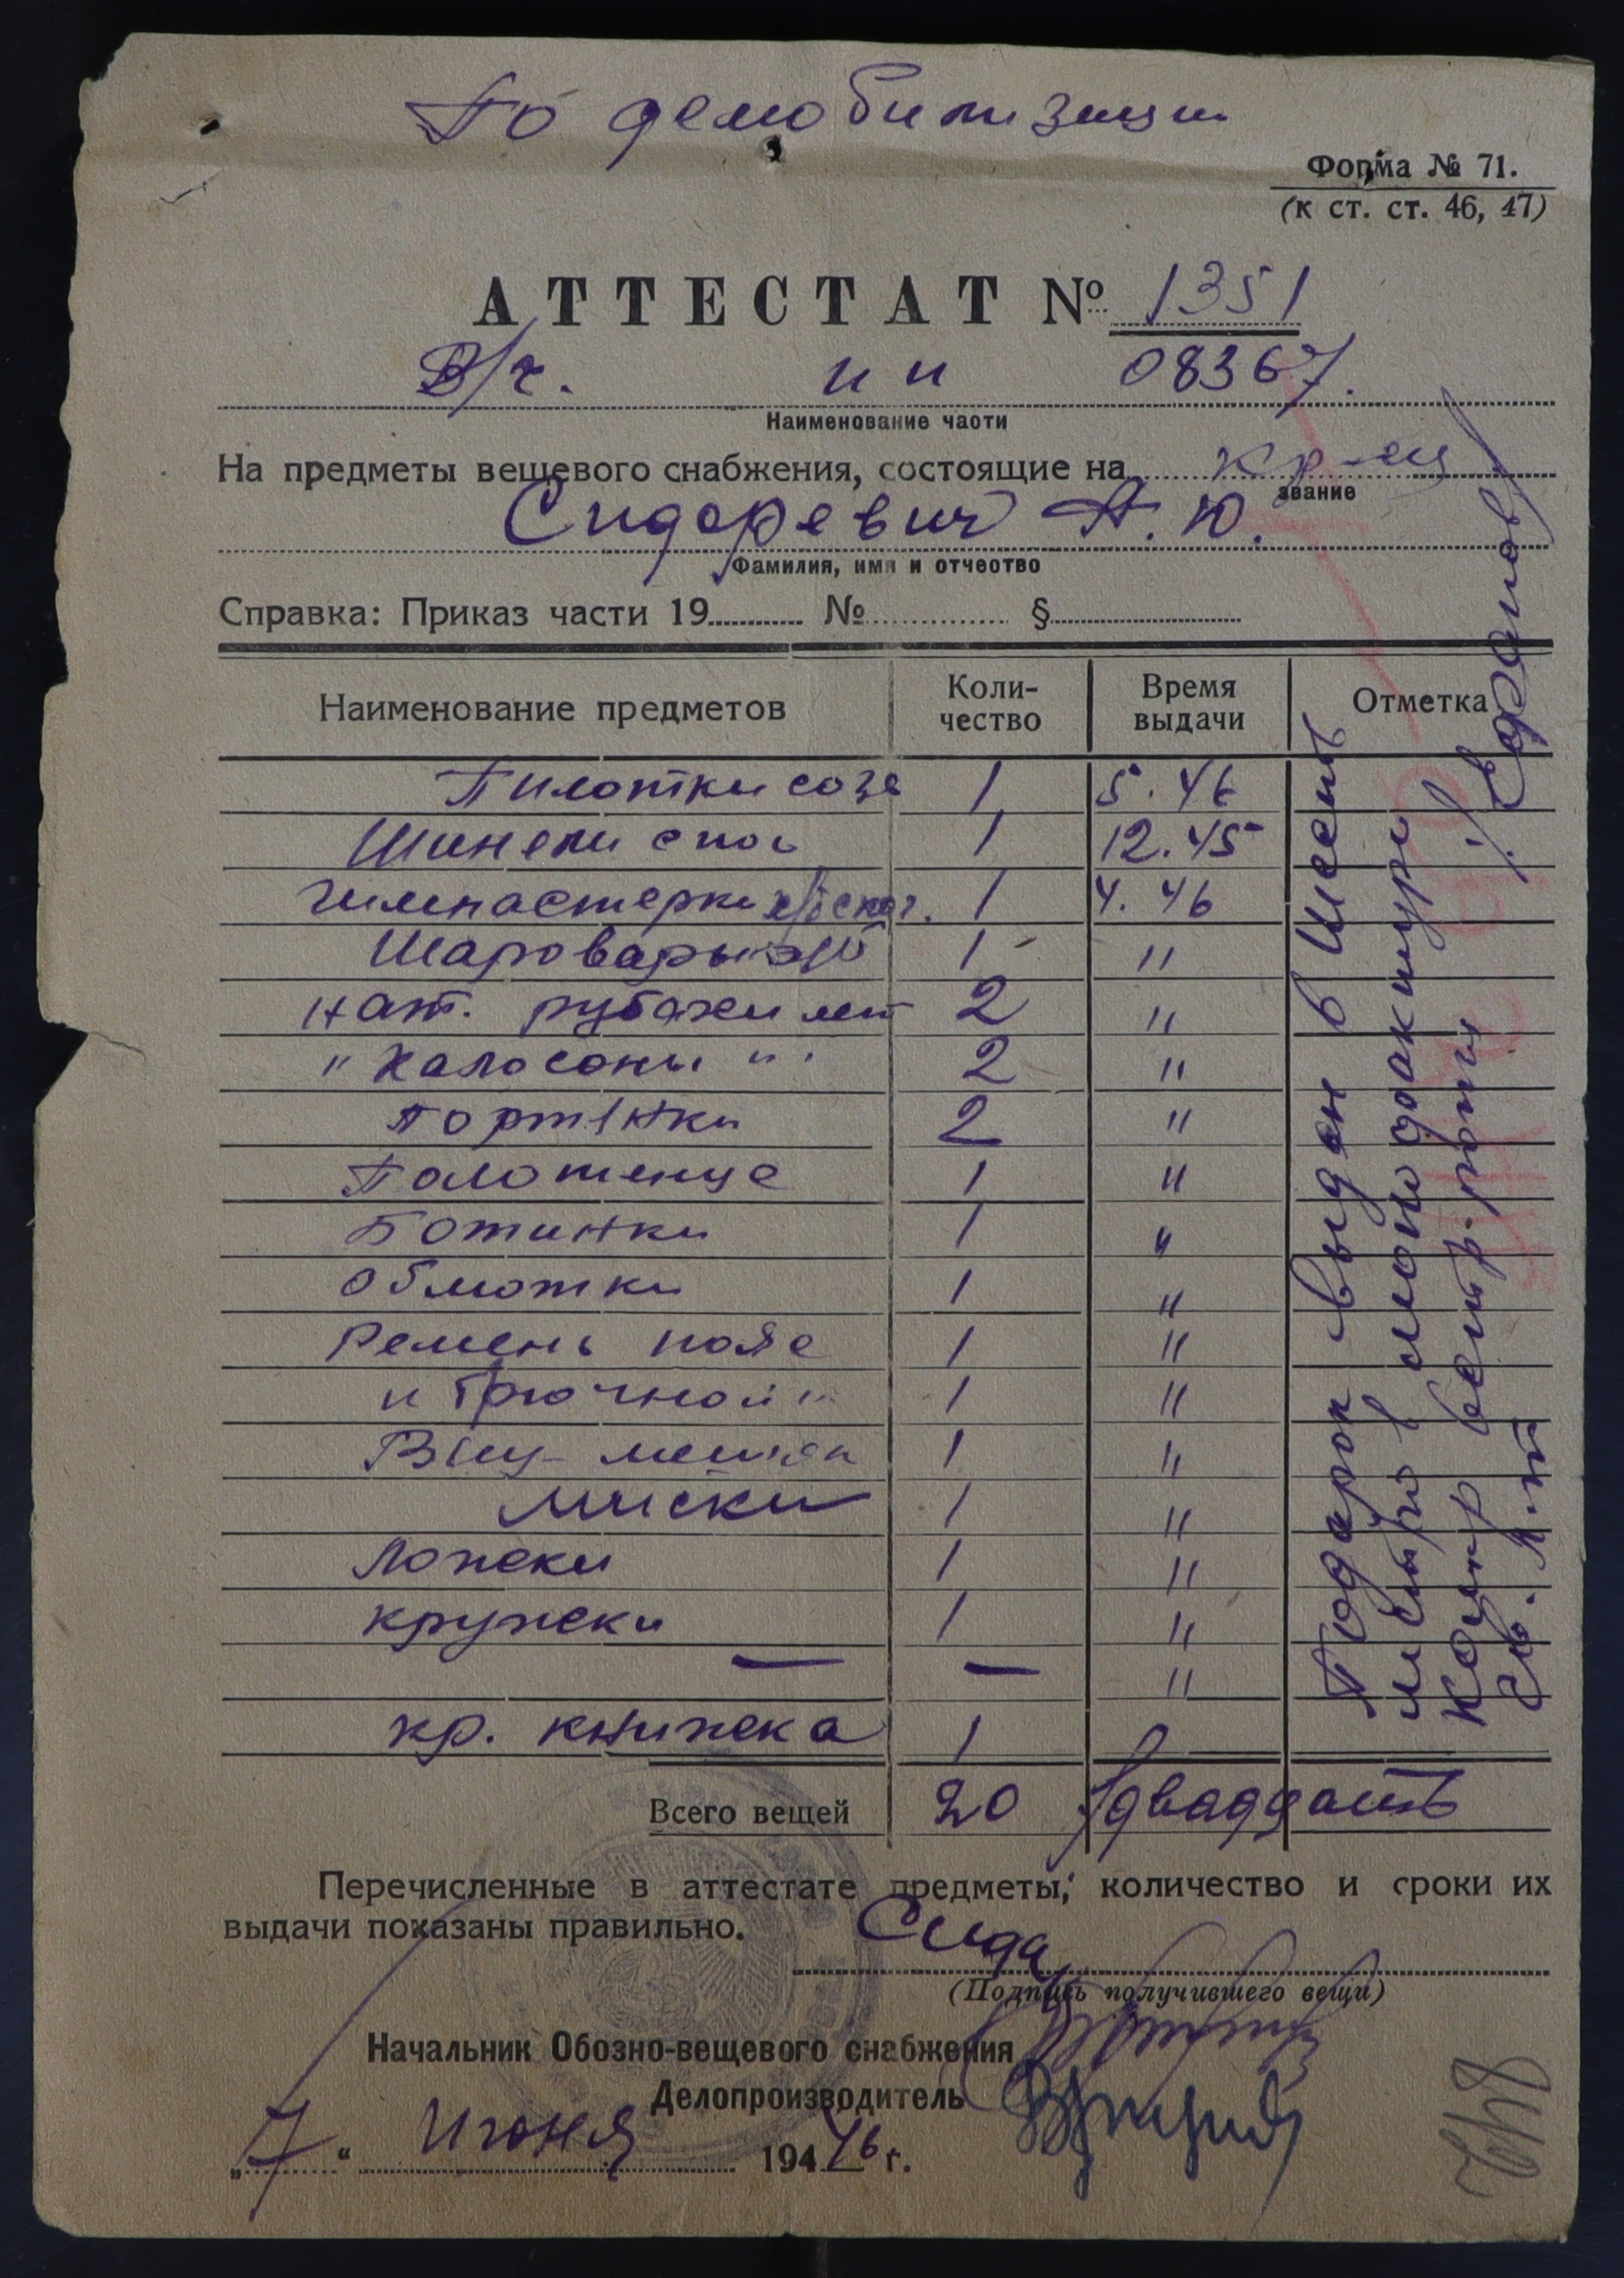 По демобилизации
Форма № 71.
(к ст. ст. 46, 47)
АТТЕСТАТ № 1351
В/ч. пп 08367.
Наименование части
На предметы вещевого снабжения, состоящие на кр-ец
звание
Сидоревич А. Ю.
Фамилия, имя и отчество
Справка: Приказ части 19 № §
Наименование предметов Коли-чество Время выдачи Отметка
Пилотки 1 5.46
Шинели 1 12.45
Гимнастерки х/б 1 4.46
Шаровары х/б 1 "
Нат. рубахи лет 2 "
" Калосоны " 2 "
Портянки 2 "
Полотенце 1 "
Ботинки 1 "
Обмотки 1 "
Ремень 1 "
" брючной " 1 "
Вещ-мешок 1 "
Миски 1 "
Ложки 1 "
Кружки 1 "
— — "
кр. книжка 1
Всего вещей 20 /двадцать
Подарок выдан в Шесть
Перечисленные в аттестате предметы, количество и сроки их
выдачи показаны правильно.
Сидо
(Подпись получившего вещи)
Начальник Обозно-вещевого снабжения
Делопроизводитель
„ 7 “ Июня 194 46 г.